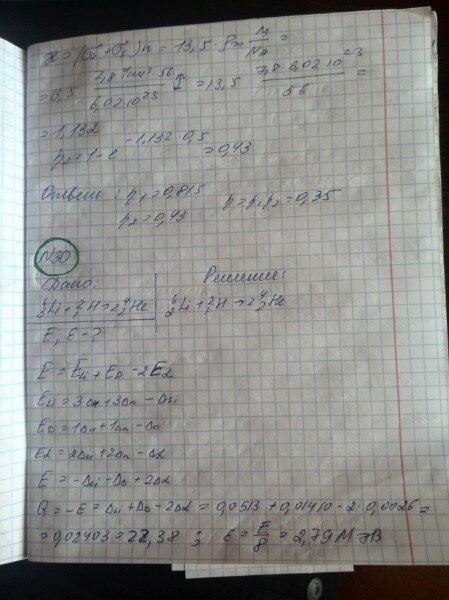 = 13,5 · ρm M/NA =
= 13,5 · 7,8 · 56 / 6,02·10²³ = 13,5 · 7,8 · 6,02·10²³ / 56 =
= 1,132
p₂ = 1 - e^(-1,132·0,5) = 0,43
Ответ: p₁ = 0,815 p = p₁p₂ = 0,35
p₂ = 0,43
N30
Дано: Решение:
⁶₃Li + ²₁H → 2⁴₂He ⁶₂Li + ²₁H → 2⁴₂He
E, ε - ?
E = ELi + ED - 2Eα
ELi = 3Δн + 3Δn - ΔLi
ED = 1Δн + 1Δn - ΔD
Eα = 2Δн + 2Δn - Δα
E = -ΔLi - ΔD + 2Δα
Q = -E = ΔLi + ΔD - 2Δα = 0,0513 + 0,01410 - 2 · 0,0026 =
= 0,02403 = 22,38 ; ε = E/8 = 2,79 МэВ